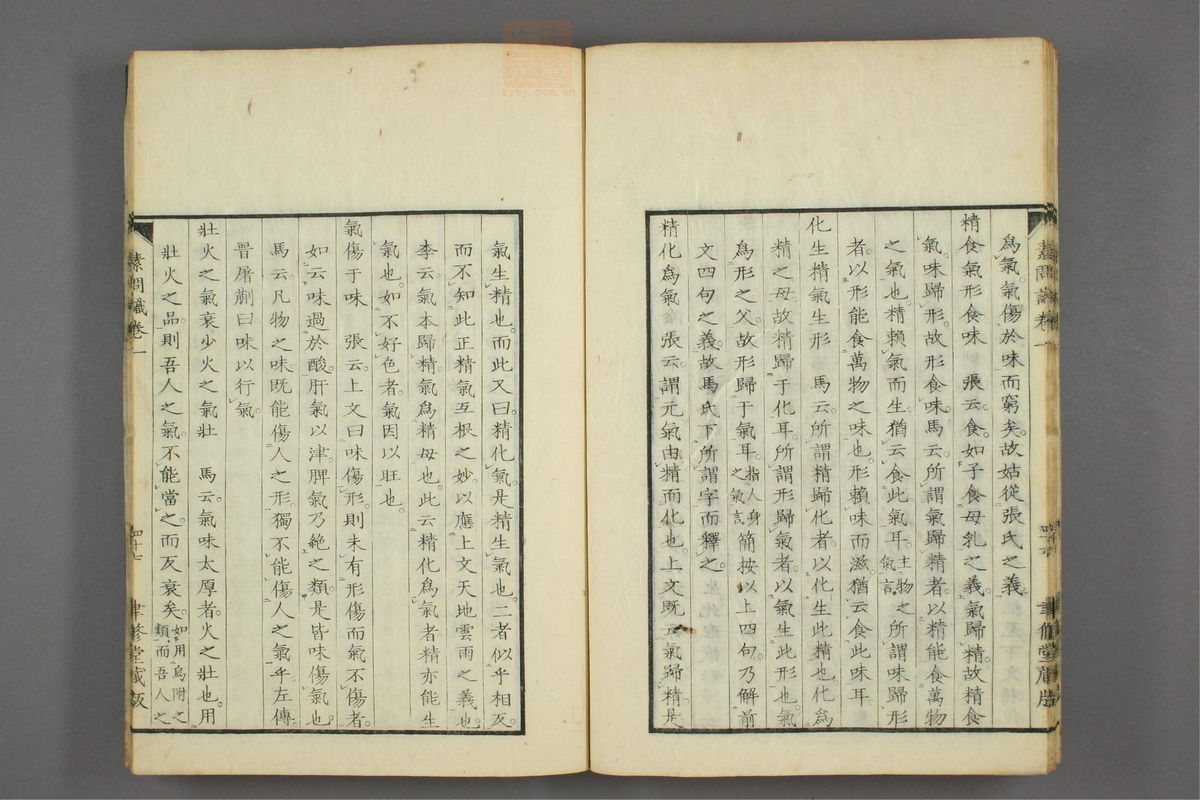 素問識卷一
爲氣。氣傷於味而窮矣。故姑從張氏之義。
精食氣形食味　張云。食。如子食母乳之義。氣歸精。故精食
氣。味歸形。故形食味。馬云。所謂氣歸精者。以精能食萬物
之氣也。精賴氣而生。猶云食此氣耳。主物之氣言。所謂味歸形
者。以形能食萬物之味也。形賴味而滋。猶云食此味耳。
化生精氣生形　馬云。所謂精歸化者。以化生此精也。化爲
精之母。故精歸于化耳。所謂形歸氣者。以氣生此形也。氣
爲形之父。故形歸于氣耳。指人身之氣言。簡按以上四句。乃解前
文四句之義。故馬氏下所謂字而釋之。
精化爲氣　張云。謂元氣由精而化也。上文既云氣歸精。是
四十六
聿修堂藏版
氣生精也。而此又曰精化氣。是精生氣也。二者似乎相反。
而不知此正精氣互根之妙。以應上文天地雲雨之義也。
李云。氣本歸精。氣爲精母也。此云精化爲氣者。精亦能生
氣也。如不好色者。氣因以旺也。
氣傷于味　張云。上文曰味傷形。則未有形傷而氣不傷者。
如云味過於酸。肝氣以津。脾氣乃絕之類。是皆味傷氣也。
馬云。凡物之味。既能傷人之形。獨不能傷人之氣乎。左傳
晉屠蒯曰。味以行氣。
壯火之氣衰少火之氣壯　馬云。氣味太厚者。火之壯也。用
壯火之品。則吾人之氣。不能當之。而反衰矣。如用烏附之類。而吾人之
素問識卷一
四十七
聿修堂藏版